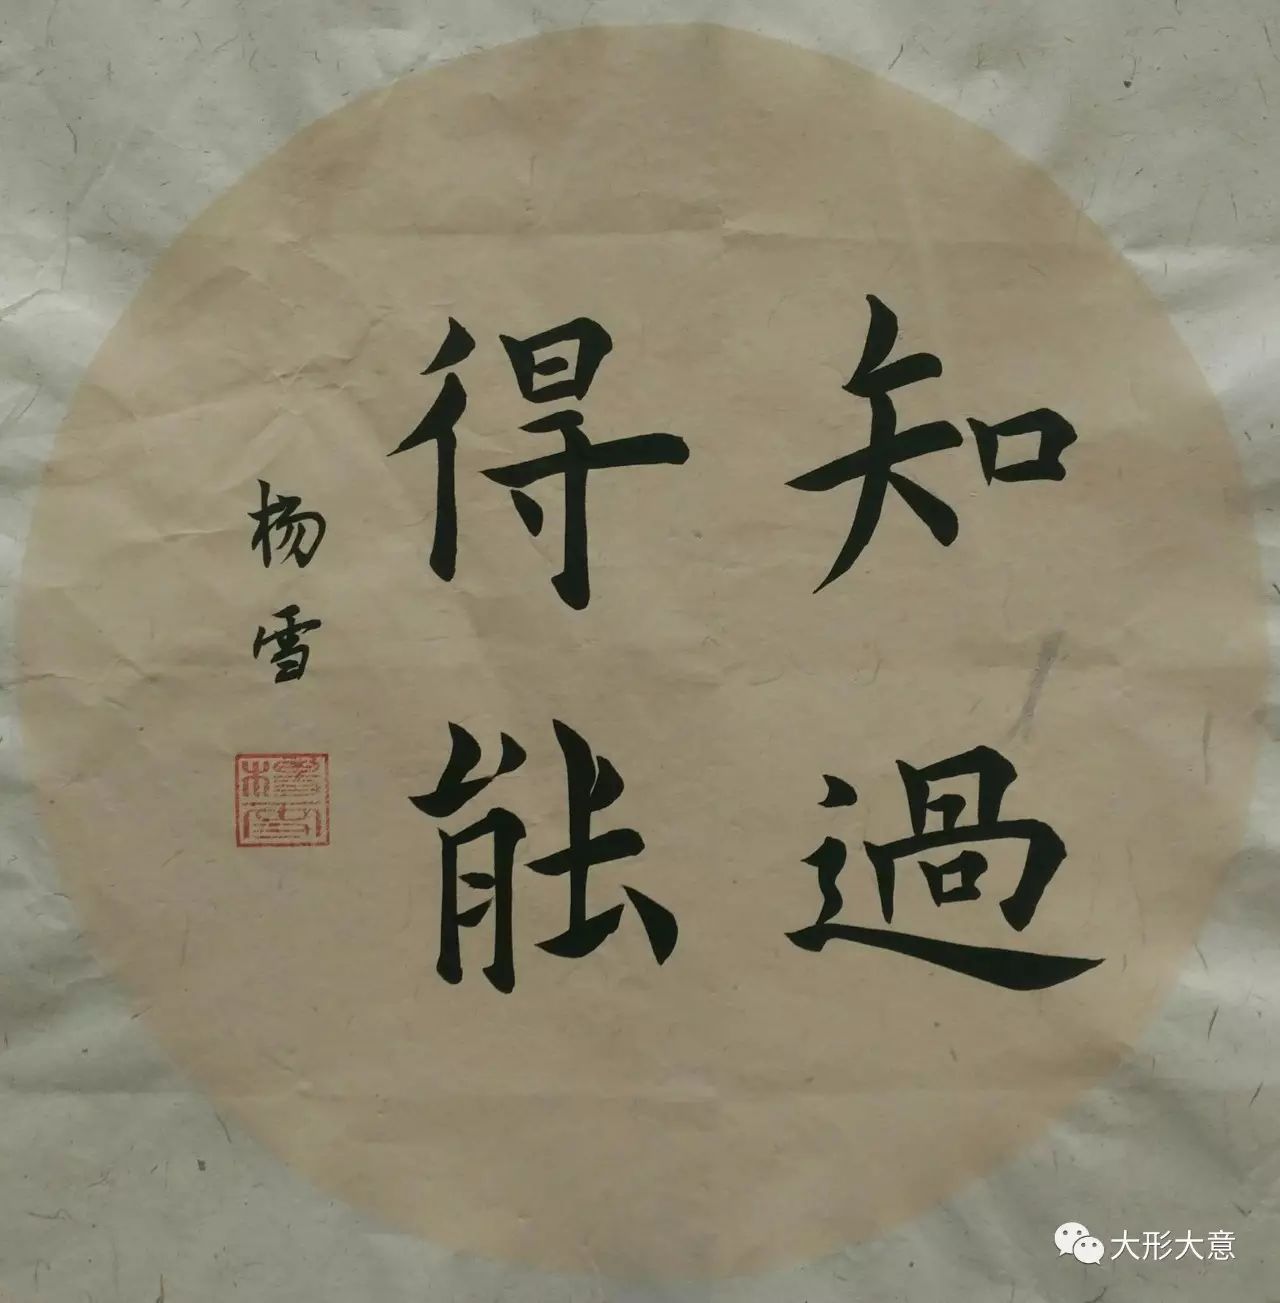 知過
得能
杨雪
楊雪
大形大意